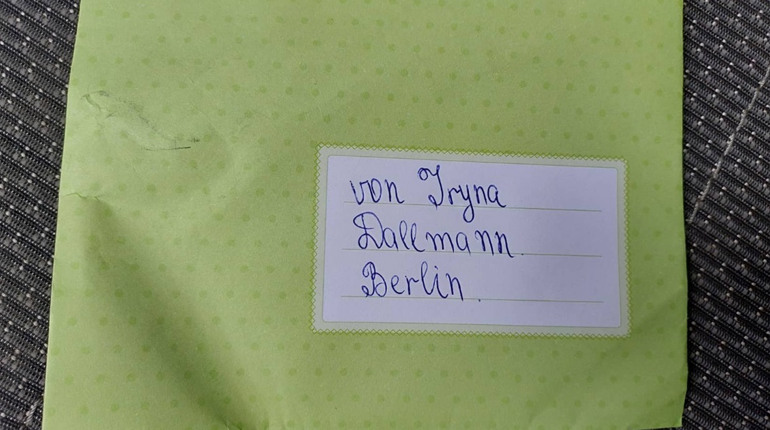 von Iryna
Dallmann.
Berlin.